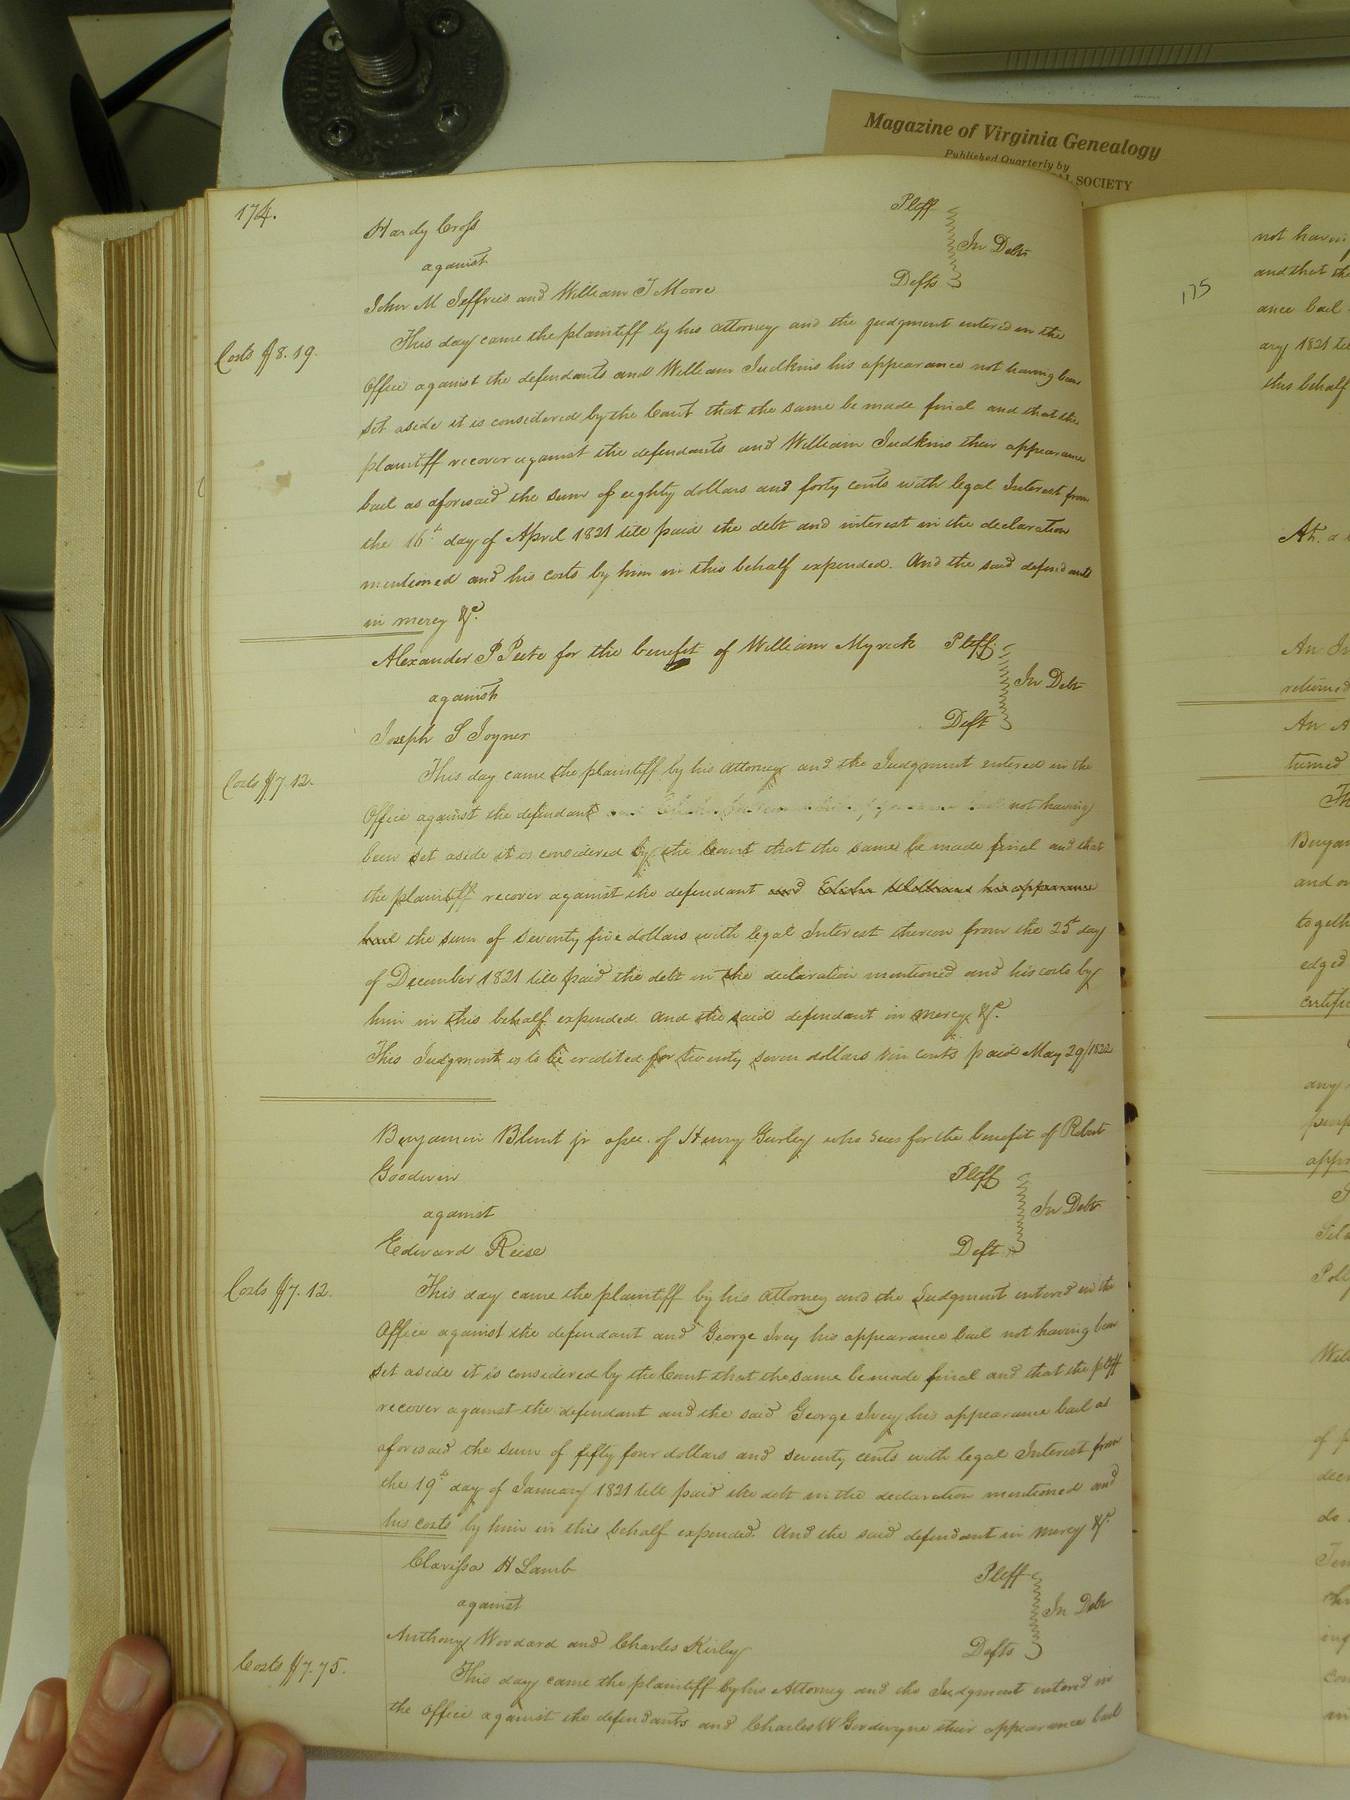 Magazine of Virginia Genealogy
Published Quarterly by
SOCIETY
174.
Hardy Cross Pltff
against In Debt
John M Jeffries and William T Moore Defts
Costs $8.19.
This day came the plaintiff by his attorney and the judgment entered in the
Office against the defendants and William Judkins his appearance not having been
set aside it is considered by the Court that the same be made final and that the
plaintiff recover against the defendants and William Judkins their appearance
bail as aforesaid the sum of eighty dollars and forty cents with legal Interest from
the 16th day of April 1821 till paid the debt and interest in the declaration
mentioned and his costs by him in this behalf expended. And the said defendants
in mercy &c.
Alexander P Peete for the benefit of William Myrick Pltff
against In Debt
Joseph S Joyner Deft
Costs $7.12.
This day came the plaintiff by his Attorney and the Judgment entered in the
Office against the defendant not having
been set aside it is considered by the Court that the same be made final and that
the plaintiff recover against the defendant and Elisha Williams his appearance
bail the sum of seventy five dollars with legal Interest thereon from the 25th day
of December 1821 till paid the debt in the declaration mentioned and his costs by
him in this behalf expended. And the said defendant in mercy &c.
This Judgment is to be credited for twenty seven dollars cents paid May 29/1822
Benjamin Blunt jr assee. of Henry Gurley who sues for the benefit of Robert
Goodwin Pltff
against In Debt
Edward Reise Deft
Costs $7.12.
This day came the plaintiff by his Attorney and the Judgment entered in the
Office against the defendant and George Ivey his appearance bail not having been
set aside it is considered by the Court that the same be made final and that the pltff
recover against the defendant and the said George Ivey his appearance bail as
aforesaid the sum of fifty four dollars and seventy cents with legal Interest from
the 19th day of January 1821 till paid the debt in the declaration mentioned and
his costs by him in this behalf expended. And the said defendant in mercy &c.
Clarissa H Lamb Pltff
against In Debt
Anthony Woodard and Charles Kirley Defts
Costs $7.75.
This day came the plaintiff by his Attorney and the Judgment entered in
the Office against the defendants and Charles W Gordwyne their appearance bail
175
not having
and that the
ance bail
ary 1821 till
this behalf
An
returned
An
turned
and
edged
any
of
do